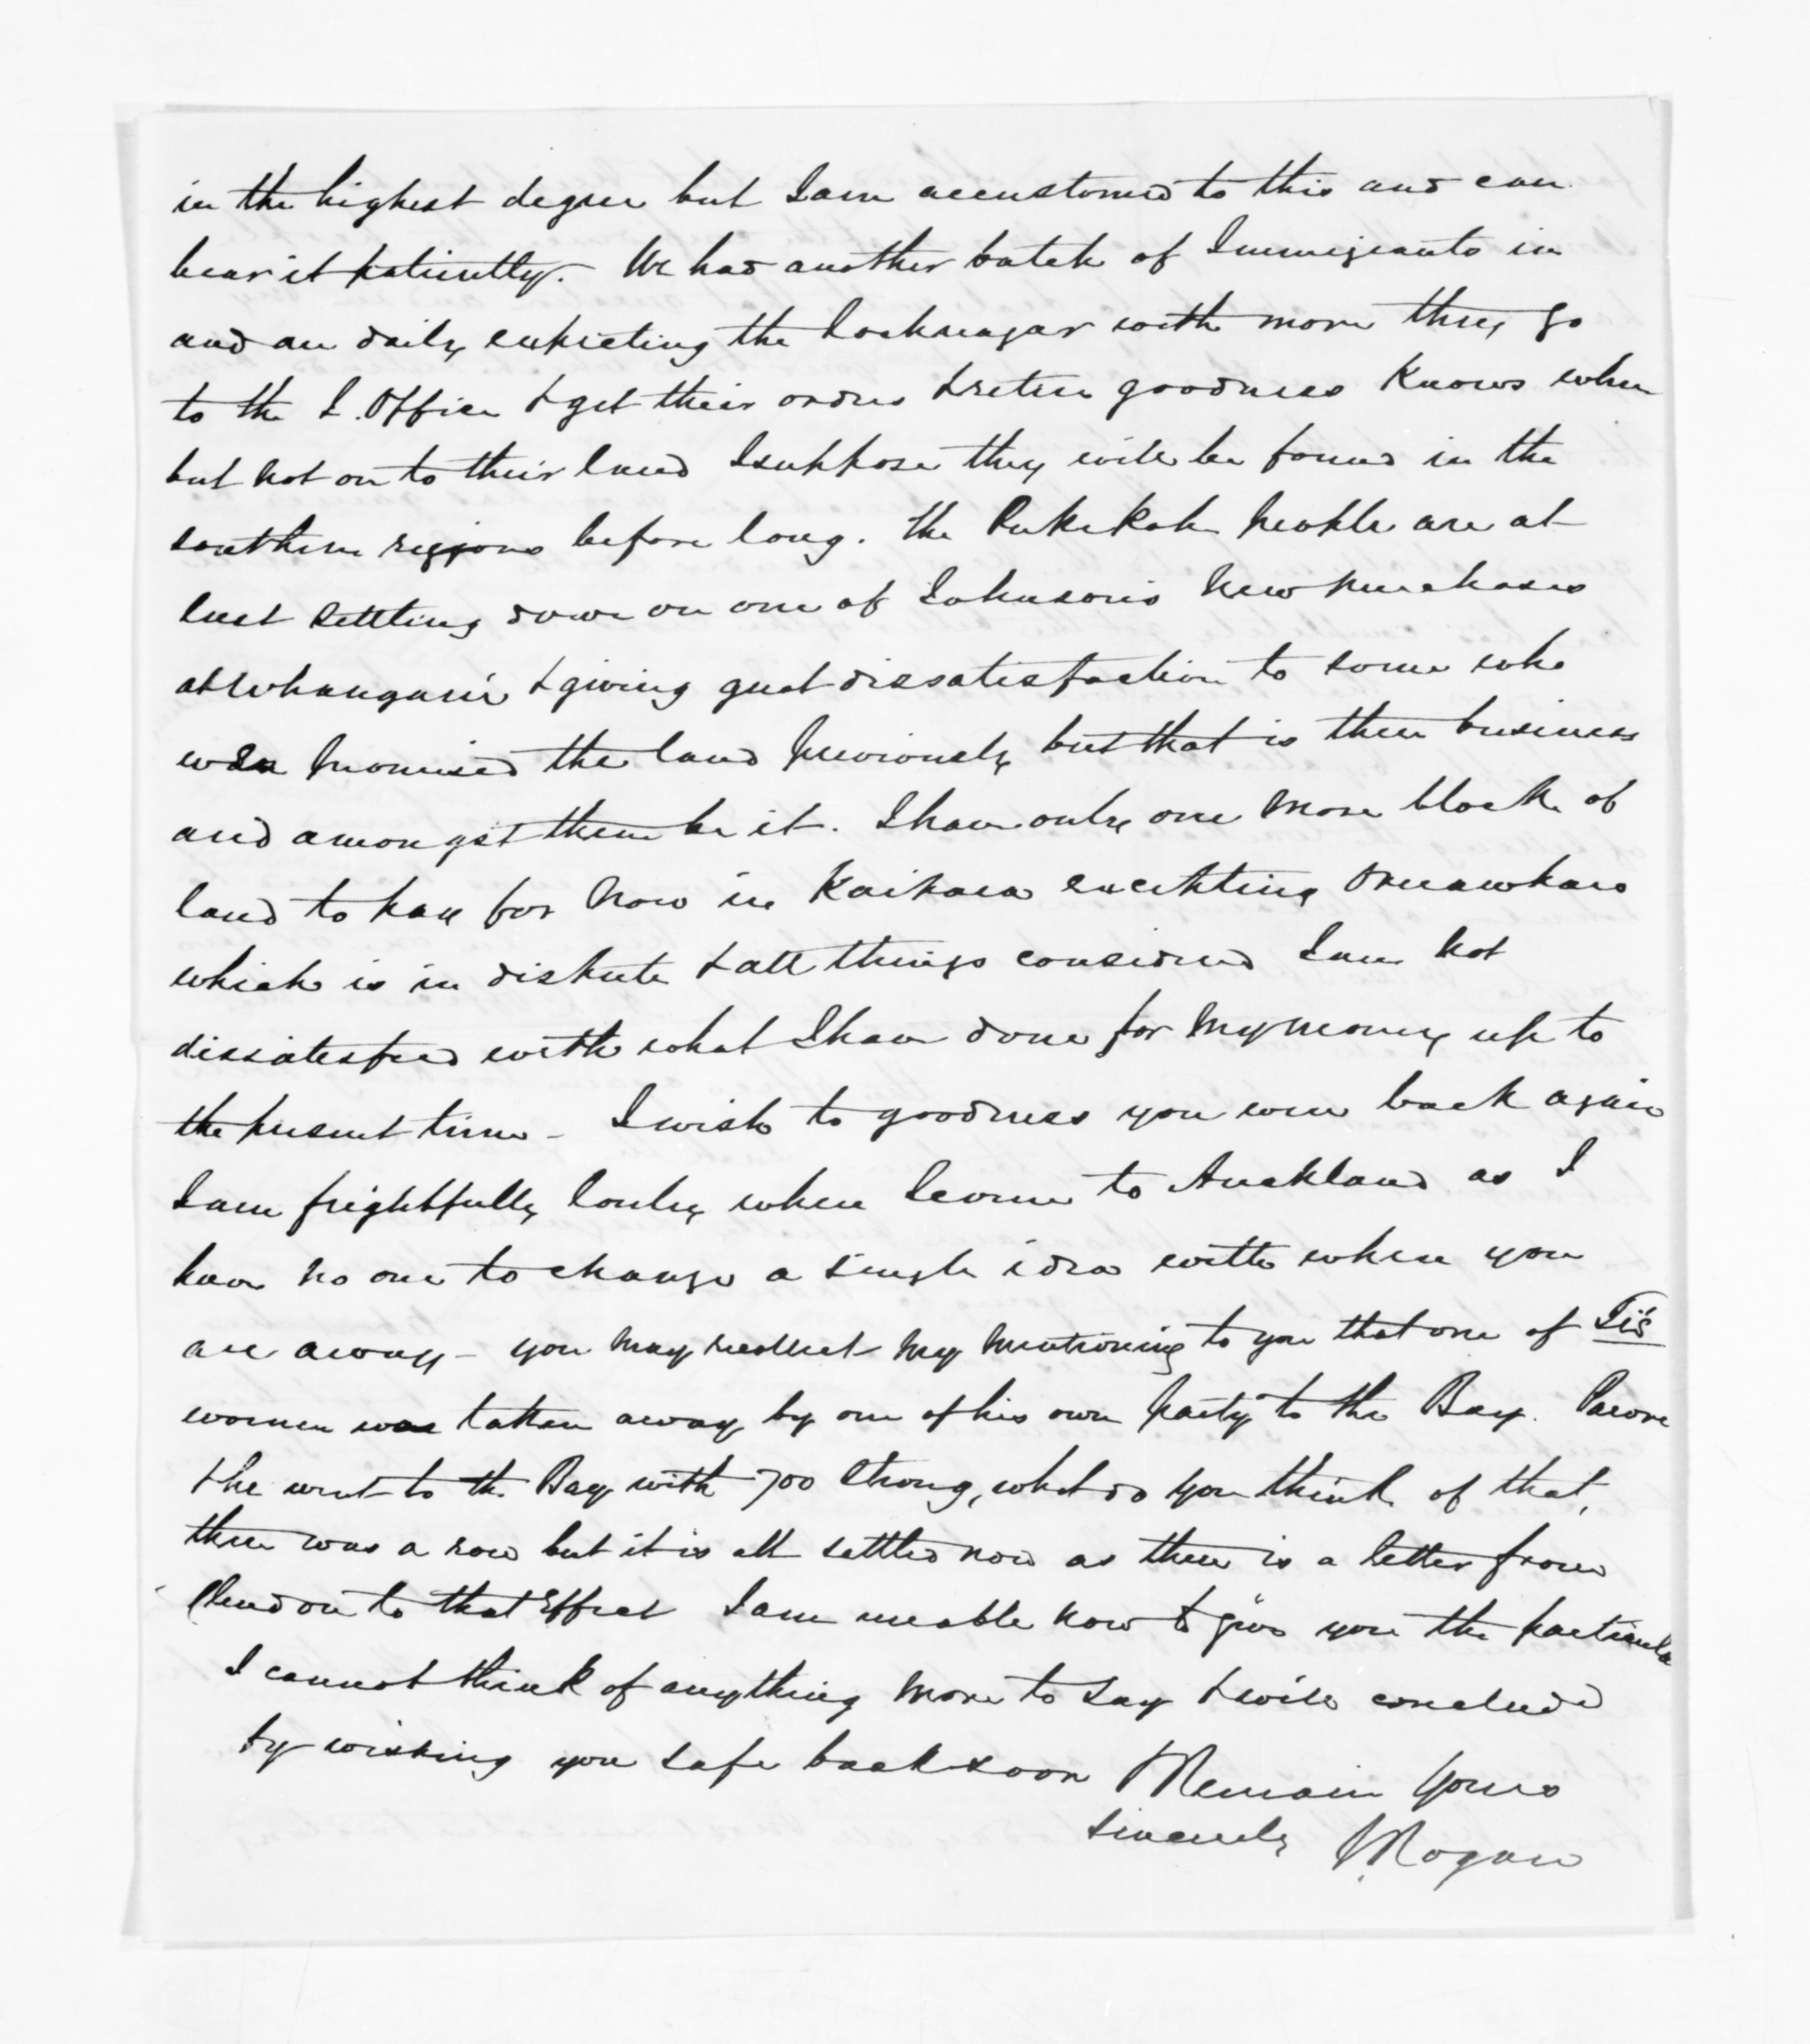 in the highest degree but I am accustomed to this and can
bear it patiently. We had another batch of Immigrants in
and are daily expecting the Locknagar with more they go
to the L. Office & get their orders & retire goodness knows where
but not on to their land I suppose they will be found in the
southern regions before long. The Pukekohe people are at
last settling down on one of Johnson's new purchases
at Whangarei & giving great dissatisfaction to some who
was promised the land previously but that is their business
and amongst them be it. I have only one more block of
land to pay for now in Kaipara excepting Oruawharo
which is in dispute & all things considered I am not
dissatisfied with what I have done for my money up to
the present time - I wish to goodness you were back again
I am frightfully lonely when I come to Auckland as I
have no one to change a single idea with when you
are away - you may recollect my mentioning to you that one of Ti's
women was taken away by one of his own party to the Bay. Parore
& he went to the Bay with 700 strong, what do you think of that,
there was a row but it is all settled now as there is a letter from
Clendon to that effect I am unable now to give you the particula
I cannot think of anything more to say & will conclude
by wishing you safe back soon Remain yours
sincerely J Rogan